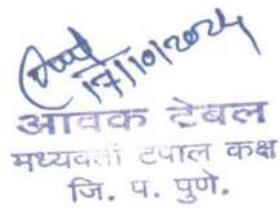 17/10/2024
आवक टेबल
मध्यवर्ती टपाल कक्ष
जि. प. पुणे.